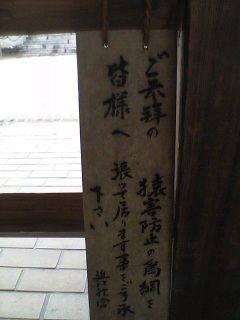 ご来拝の
皆様へ
猿害防止の為網を
張って居ります事をご了承
下さい